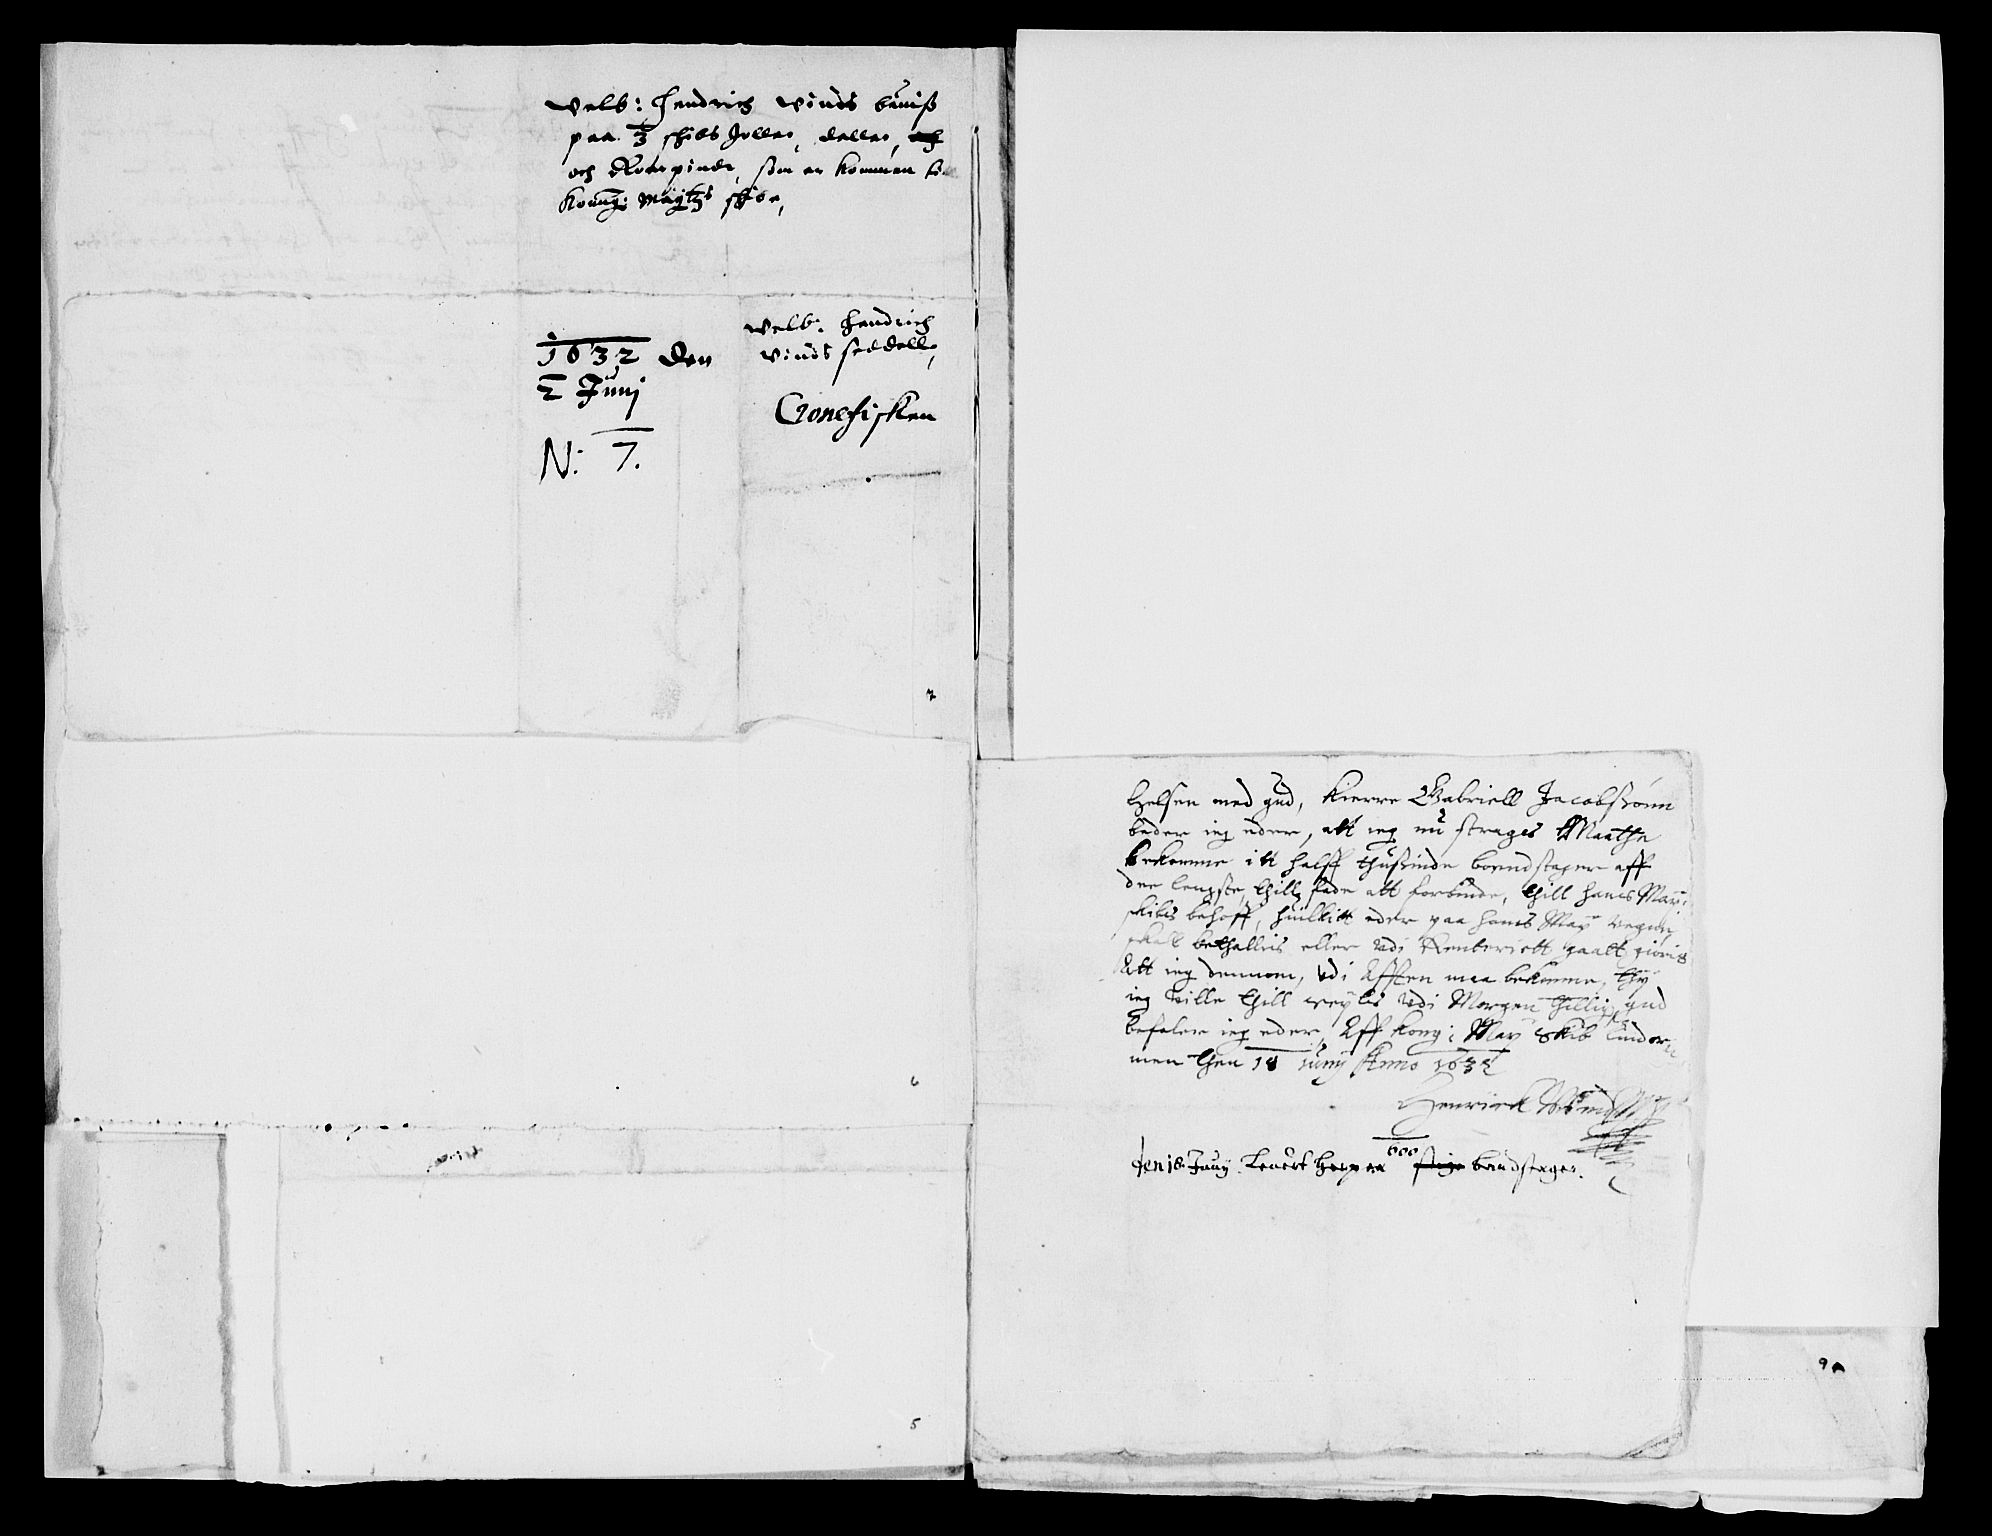 Velb: Hendrich Vinds beuiß
paa 3 skibs Joller, deller, och
och Roerpinde, som er kommen til
Konng: Maÿtz skibe,
1632 den
2 Junj
N: 7.
Velb: Hendrich
Vinds seddell,
Cronefisken
7
6
5
Helsen med gud, Kierre Gabriell Jacobsszønn
beder ieg eder, att ieg nu strages Maathe
bekomme it halff thußinde bondstager aff
dee lengste, thill fade att forbinde, thill hans May:
skibs behoff, huilkitt eder paa hans May vegnn
skall bethallis eller vdi Renteriett gaatt giøris
Att ieg dennom, vdi Afften maa bekomme, thÿ
ieg ville thill seyls vdi Morgen thillig, gud
befaler ieg eder, Aff Kong: May Skib Lindorm
men then 18 iunij Anno 1632
Henrick Vind
600
den 18 Junij leuert herpaa stige bandstager.
9A